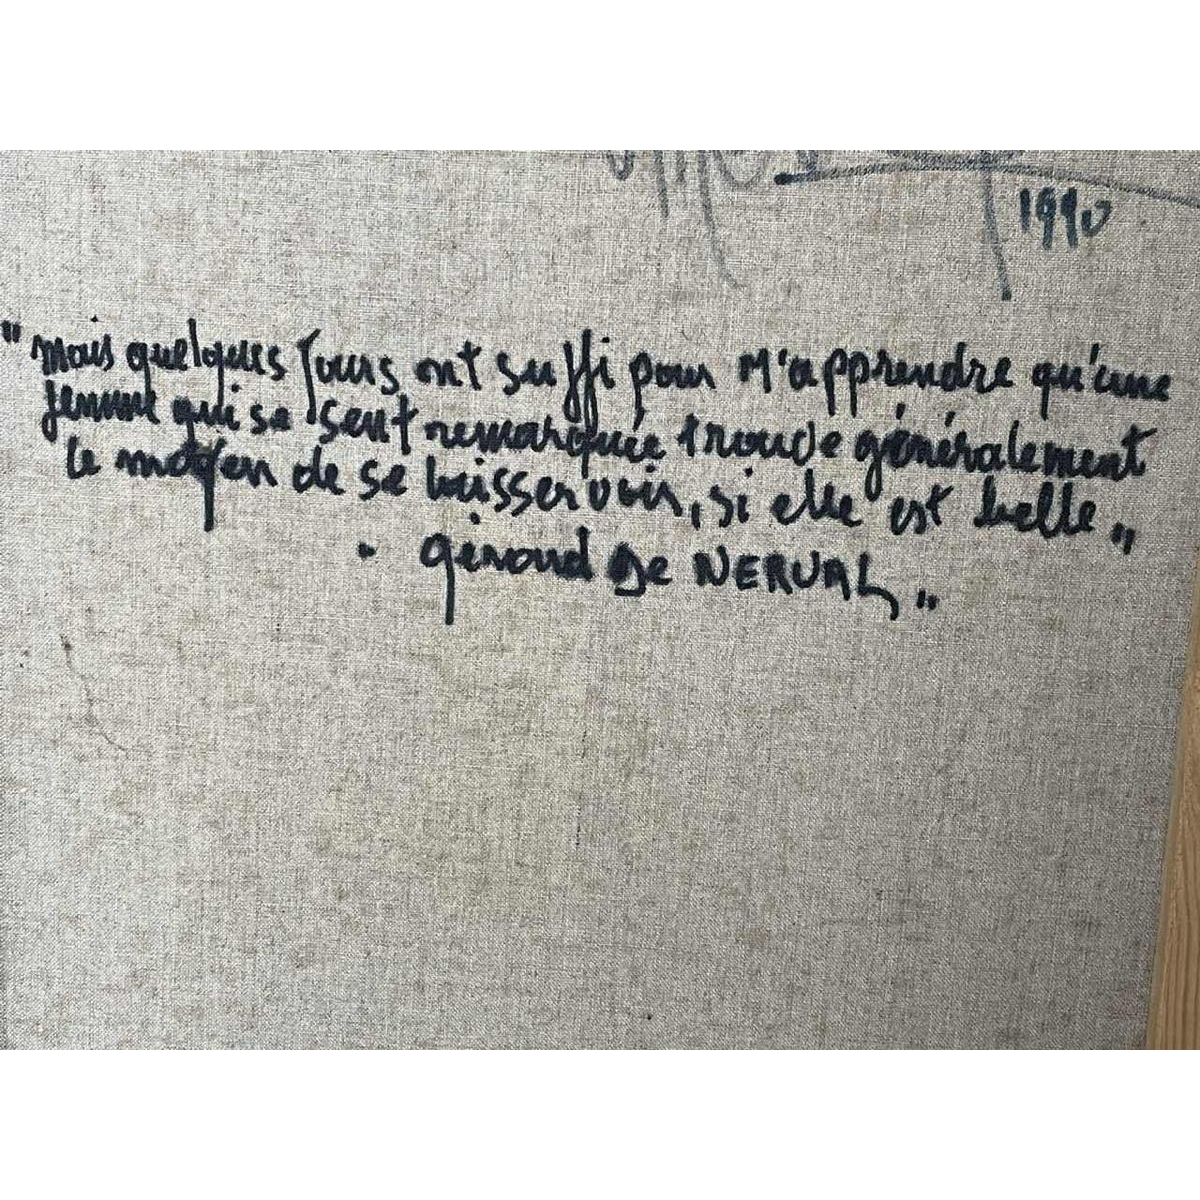 1990
"Mais quelques Jours ont suffi pour M'apprendre qu'une
femme qui se sent remarquée trouve généralement
le moyen de se laisser voir, si elle est belle„
. Gérard De NERVAL„